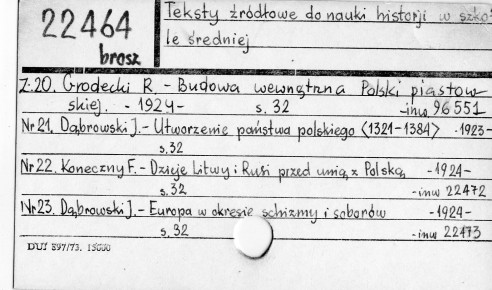 22464
brosz
Teksty źródłowe do nauki historji w szko-
le średniej
Z.20. Grodecki R. - Budowa wewnętrzna Polski piastow
skiej. - 1924- s. 32 -inw 96551
Nr 21. Dąbrowski J. - Utworzenie państwa polskiego <1321-1384> -1923-
s.32
Nr 22. Koneczny F. - Dzieje Litwy i Rusi przed unią z Polską, -1924-
s. 32 -inw 22472
Nr 23. Dąbrowski J. - Europa w okresie schizmy i soborów -1924-
s. 32 -inw 22473
DUJ 897/73. 15000